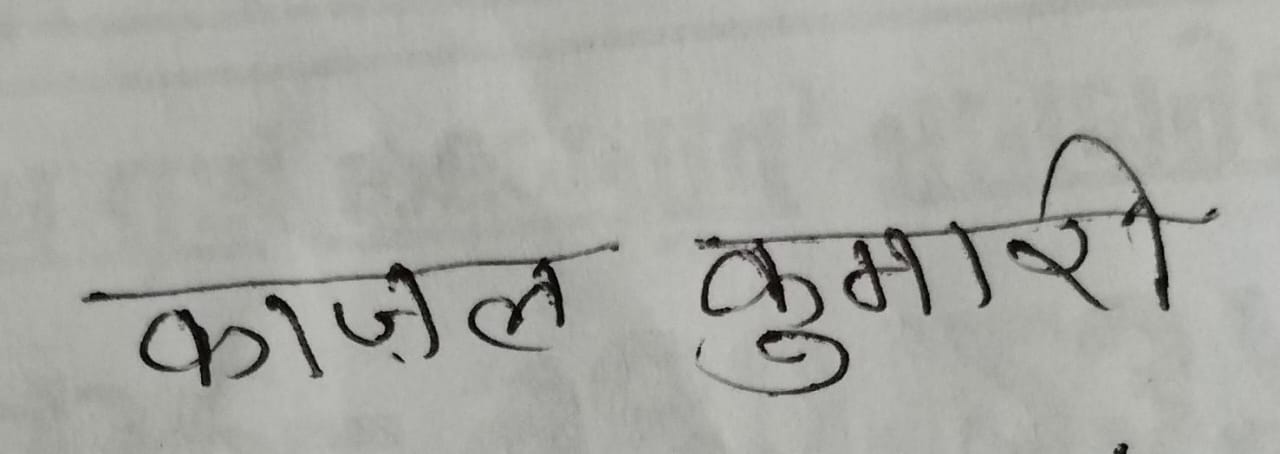 काज़ल कुमारी